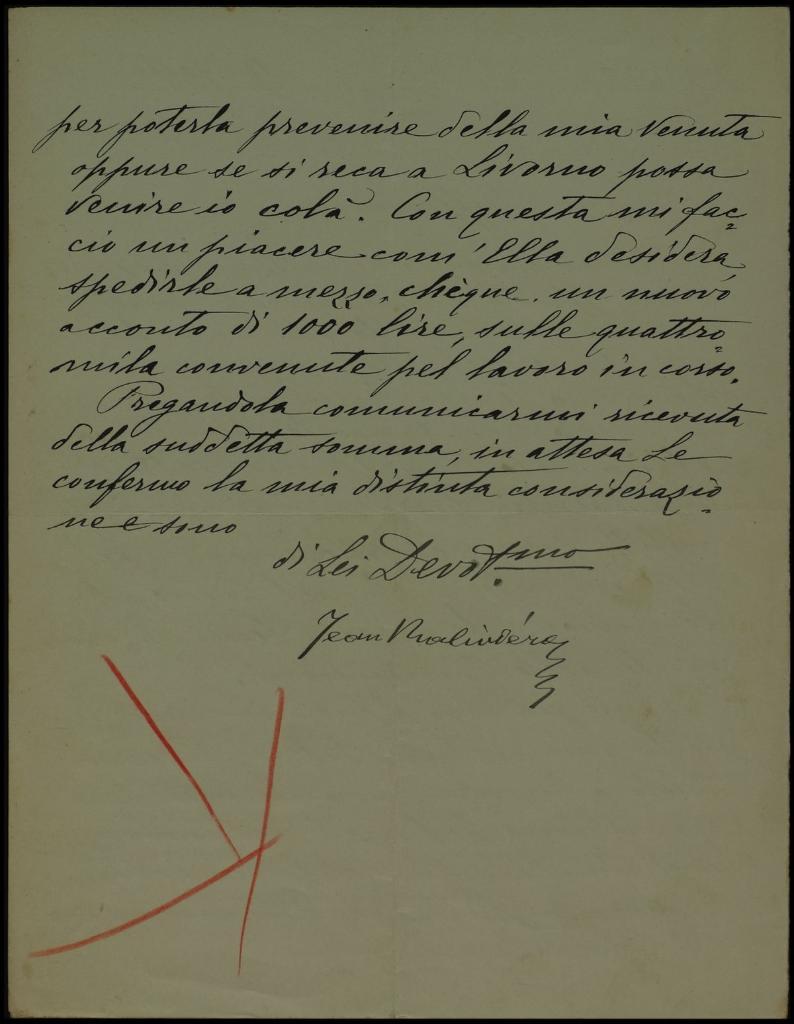 per poterla prevenire della mia venuta
oppure se si reca a Livorno possa
venire io colà. Con questa mi fac=
cio un piacere com' Ella desidera
spedirle a mezzo chèque un nuovo
acconto di 1000 lire, sulle quattro=
mila convenute pel lavoro in corso.
Pregandola comunicarmi ricevuta
della suddetta somma, in attesa Le
confermo la mia distinta considerazio=
ne e sono
di Lei Devot.mo
Jean